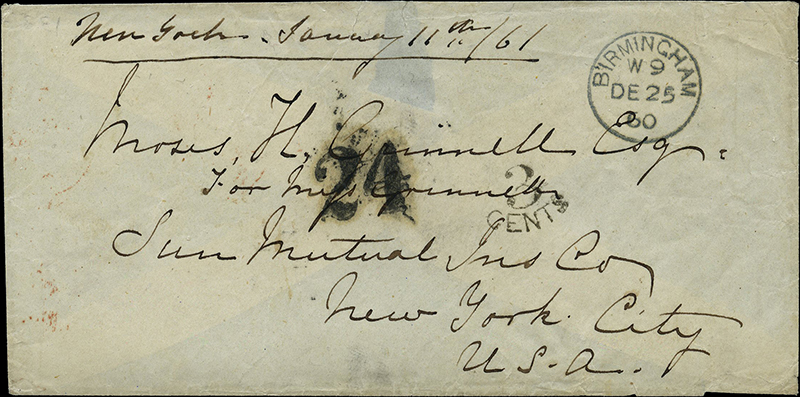 New York. January 11th/61
BIRMINGHAM
W 9
DE 25
60
Moses, H, Grinnell Esq.
24
For Miss Grinnell
3
CENTS
Sun Mutual Ins Co
New York City
U.S.A.